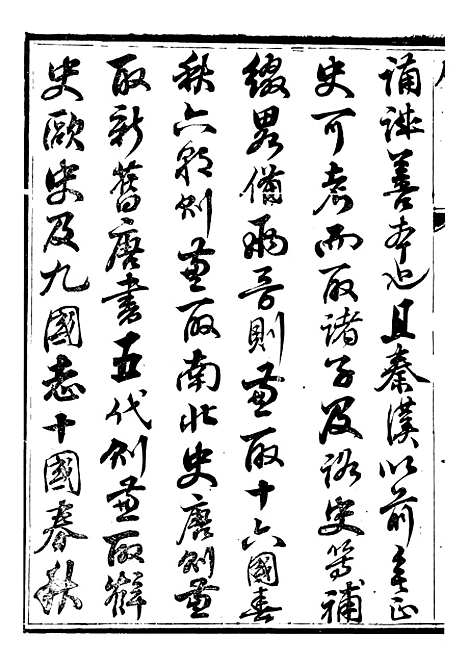 誦誠善本也且秦漢以前無正
史可考而取諸子及詠史等補
綴畧備兩晉則兼取十六國春
秋六朝則兼取南北史唐則兼
取新舊唐書五代則兼取薛
史歐史及九國志十國春秋